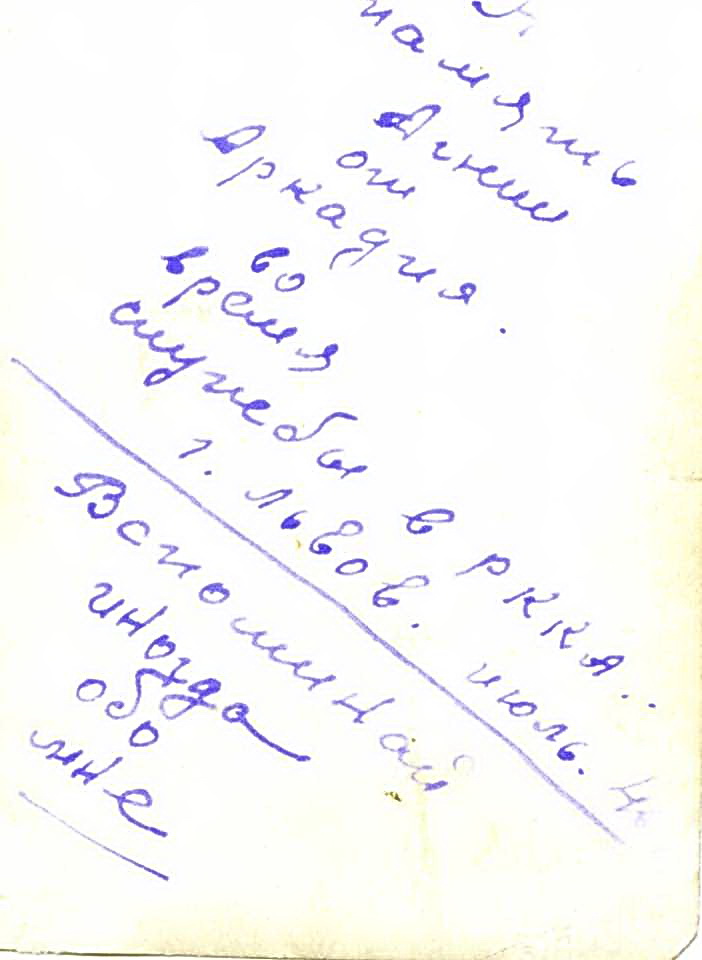 память
Агнии
от
Аркадия.
во
время
службы в РККА..
г. Львов. июль.
Вспоминай
иногда
обо
мне